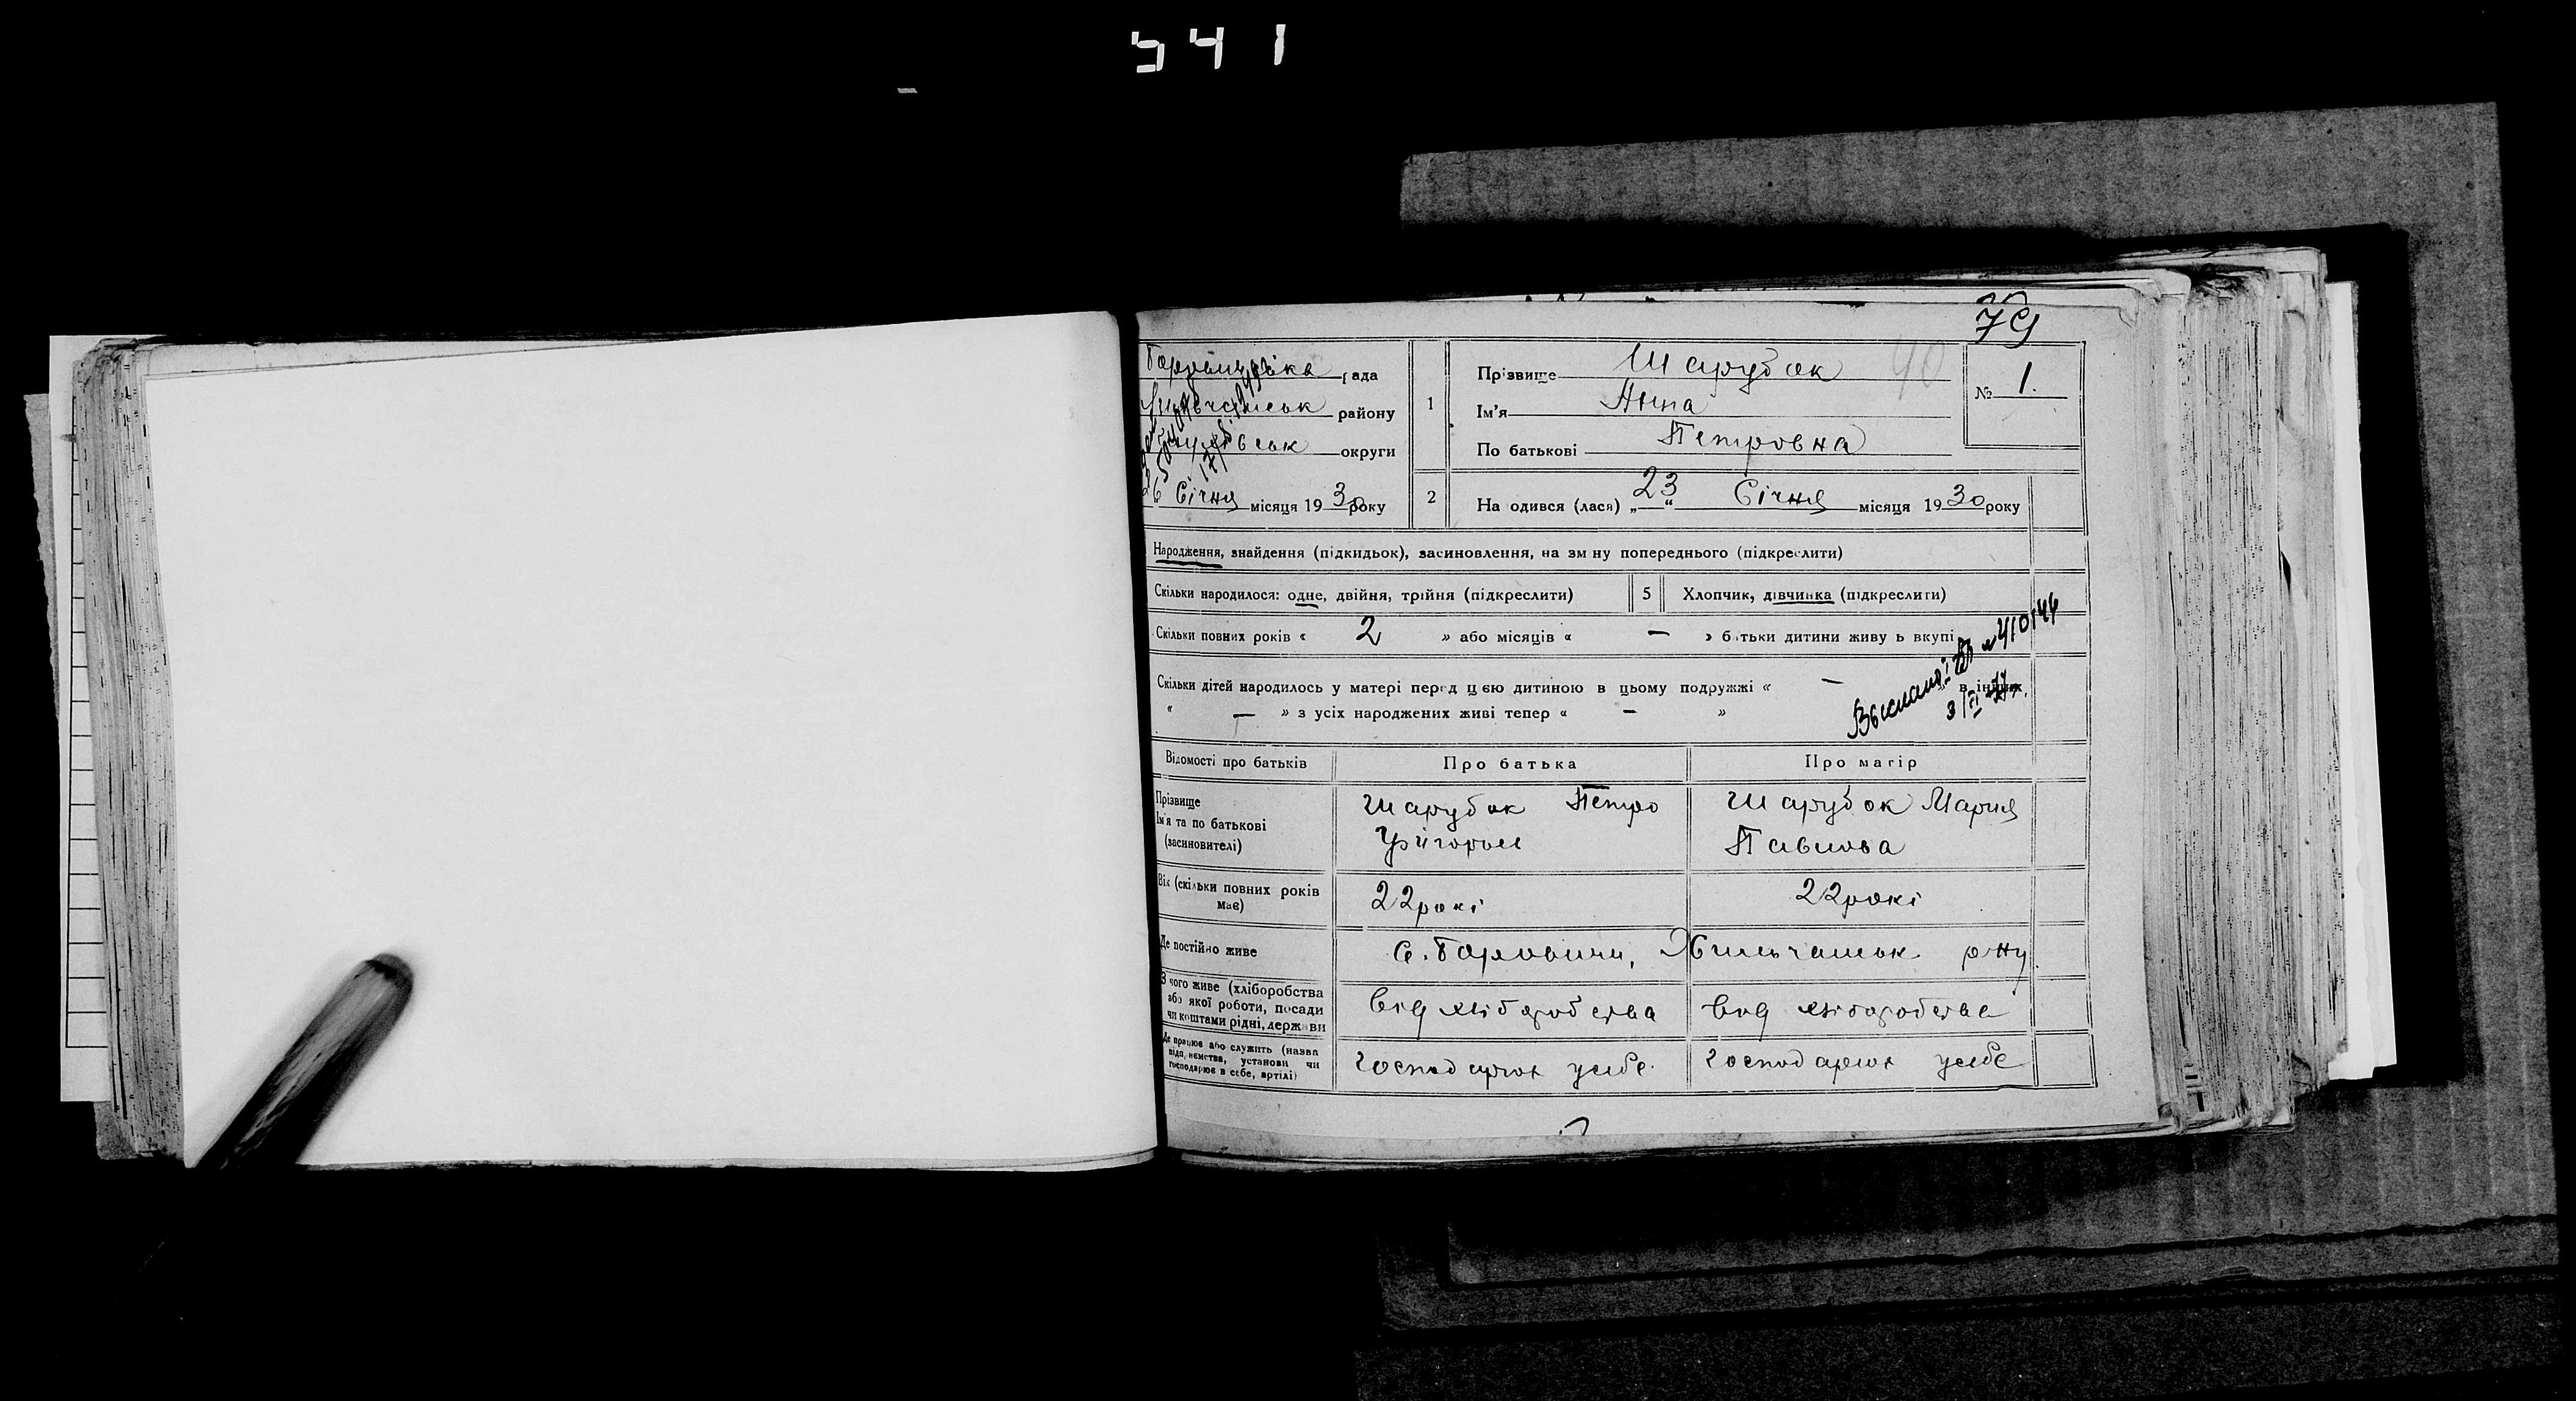 541
79
рада
району
округи
Січня місяця 1930 року
1
Прізвище Шарубок 40
Ім'я Анна
По батькові Петровна
№ 1.
2
На одився (лася) „23“ Січня місяця 1930 року
Народження, знайдення (підкидьок), засиновлення, на зм ну попереднього (підкреслити)
Скільки народилося: одне, двійня, трійня (підкреслити)
5
Хлопчик, дівчинка (підкреслити)
Скільки повних років « 2 » або місяців « — » батьки дитини живу ь вкупі
Скільки дітей народилось у матері перед цією дитиною в цьому подружжі « — » в інших
« — » з усіх народжених живі тепер « — »
410144
Відомості про батьків
Про батька
Про матір
Прізвище
Ім'я та по батькові
(засиновителі)
Шарубок Петро
Григоров
Шарубок Мария
Павлова
Вік (скільки повних років
має)
22 рокі
22 рокі
Де постійно живе
С. р-ну
З чого живе (хліборобства
або якої роботи, посади
чи коштами рідні, держави
Від хліборобства
Від хліборобства
Де працює або служить (назва
підп,иємства, установи чи
господарює в себе, артілі)
господарюют у себе
господарюют у себе